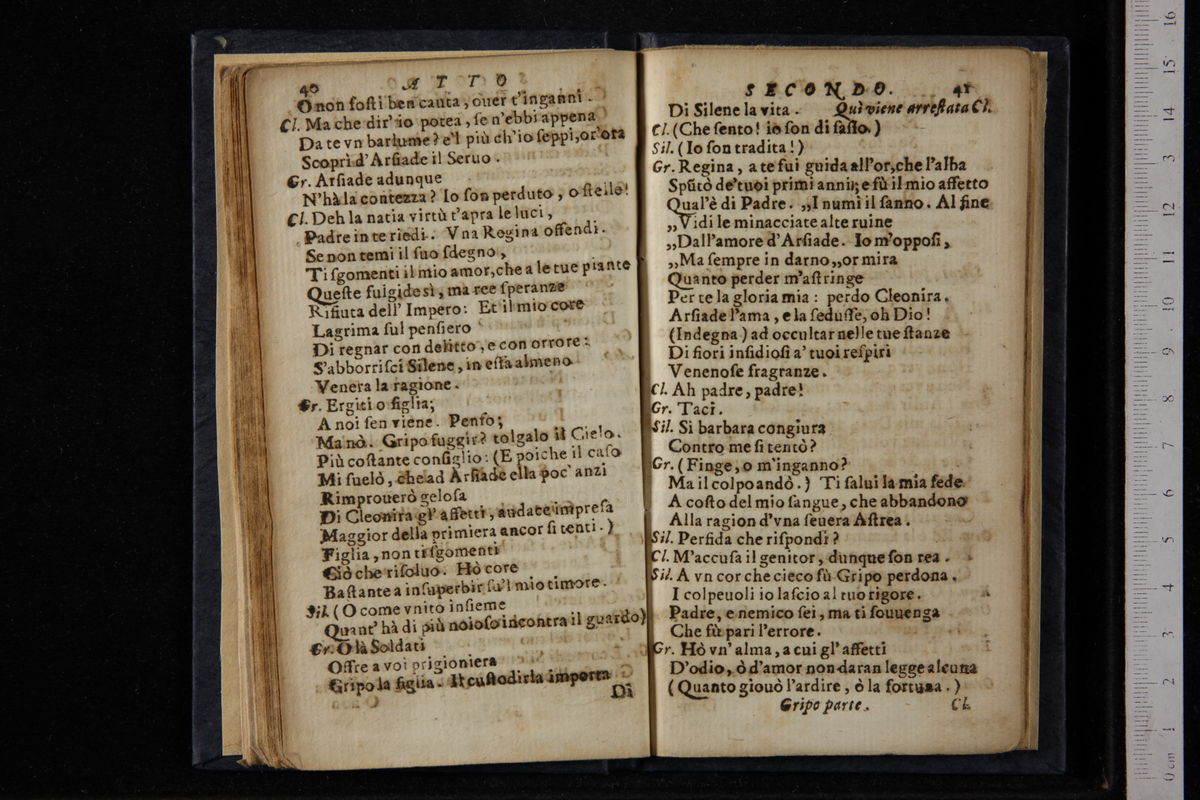 40 ATTO
O non fosti ben cauta, ouer t'inganni.
Cl. Ma che dir' io potea, se n'ebbi appena
Da te vn barlume? e'l più ch'io seppi, or'ora
Scoprì d'Arsiade il Seruo.
Gr. Arsiade adunque
N'hà la contezza? Io son perduto, o stelle!
Cl. Deh la natia virtù t'apra le luci,
Padre in te riedi. Vna Regina offendi.
Se non temi il suo sdegno,
Ti sgomenti il mio amor, che a le tue piante
Queste fulgide sì, ma ree speranze
Rifiuta dell' Impero: Et il mio core
Lagrima sul pensiero
Di regnar con delitto, e con orrore:
S'abborrisci Silene, in essa almeno
Venera la ragione.
Gr. Ergiti o figlia;
A noi sen viene. Penso;
Ma nò. Gripo fuggir? tolgalo il Cielo.
Più costante consiglio: (E poiche il caso
Mi suelò, che ad Arsiade ella poc' anzi
Rimprouerò gelosa
Di Cleonira gl' affetti, audace impresa
Maggior della primiera ancor si tenti.)
Figlia, non ti sgomenti
Ciò che risoluo. Hò core
Bastante a insuperbir su'l mio timore.
Sil. (O come vnito insieme
Quant' hà di più noioso incontra il guardo)
Gr. O là Soldati
Offre a voi prigioniera
Gripo la figlia. Il custodirla importa
Di
SECONDO. 41
Di Silene la vita. Quì viene arrestata Cl.
Cl. (Che sento! io son di sasso.)
Sil. (Io son tradita!)
Gr. Regina, a te fui guida all'or, che l'alba
Spùtò de'tuoi primi anni; e fù il mio affetto
Qual'è di Padre. „I numi il sanno. Al fine
„Vidi le minacciate alte ruine
„Dall'amore d'Arsiade. Io m'opposi,
„Ma sempre in darno„ or mira
Quanto perder m'astringe
Per te la gloria mia: perdo Cleonira.
Arsiade l'ama, e la sedusse, oh Dio!
(Indegna) ad occultar nelle tue stanze
Di fiori insidiosi a' tuoi respiri
Venenose fragranze.
Cl. Ah padre, padre!
Gr. Taci.
Sil. Sì barbara congiura
Contro me si tentò?
Gr. (Finge, o m'inganno?
Ma il colpo andò.) Ti salui la mia fede
A costo del mio sangue, che abbandono
Alla ragion d'vna seuera Astrea.
Sil. Perfida che rispondi?
Cl. M'accusa il genitor, dunque son rea.
Sil. A vn cor che cieco fù Gripo perdona.
I colpeuoli io lascio al tuo rigore.
Padre, e nemico sei, ma ti souuenga
Che fù pari l'errore.
Gr. Hò vn' alma, a cui gl' affetti
D'odio, ò d'amor non daran legge alcuna
(Quanto giouò l'ardire, ò la fortuna.)
Gripo parte. Cl.
16
15
14
13
12
11
10
9
8
7
6
5
4
3
2
1
0 cm